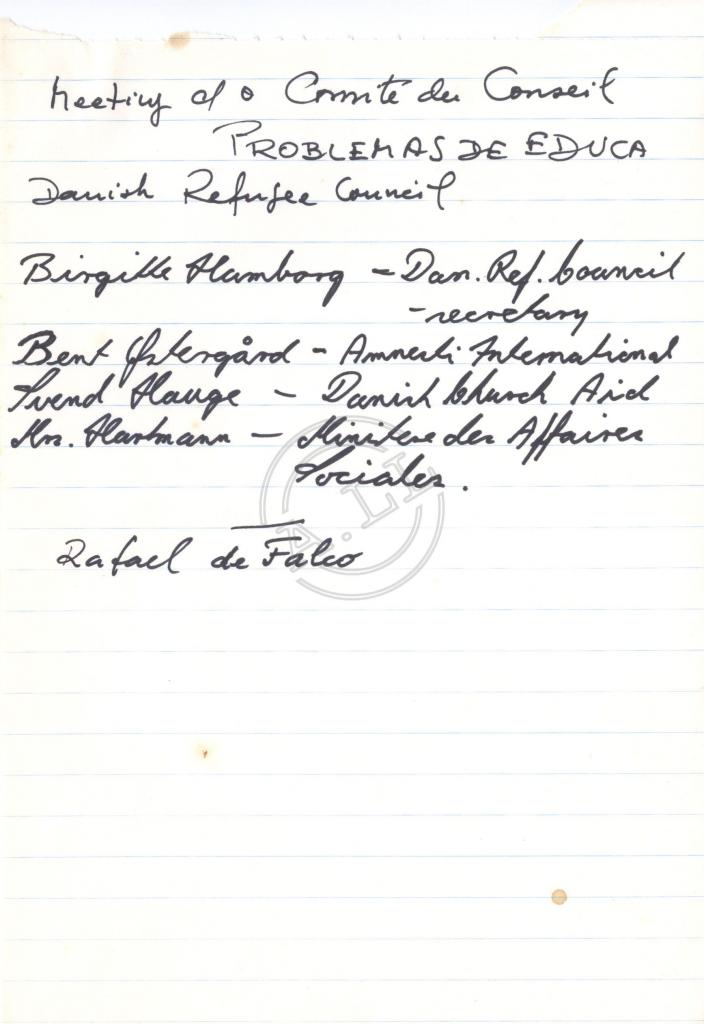 Meeting c/ o Comité du Conseil
PROBLEMAS DE EDUCA
Danish Refugee Council
Birgitte Hamborg – Dan. Ref. Council
- secretary
Bent Østergård – Amnesti International
Svend Hauge – Danish Church Aid
Mrs. Hartmann – Ministere des Affaires
Sociales.
Rafael de Falco
A.LL